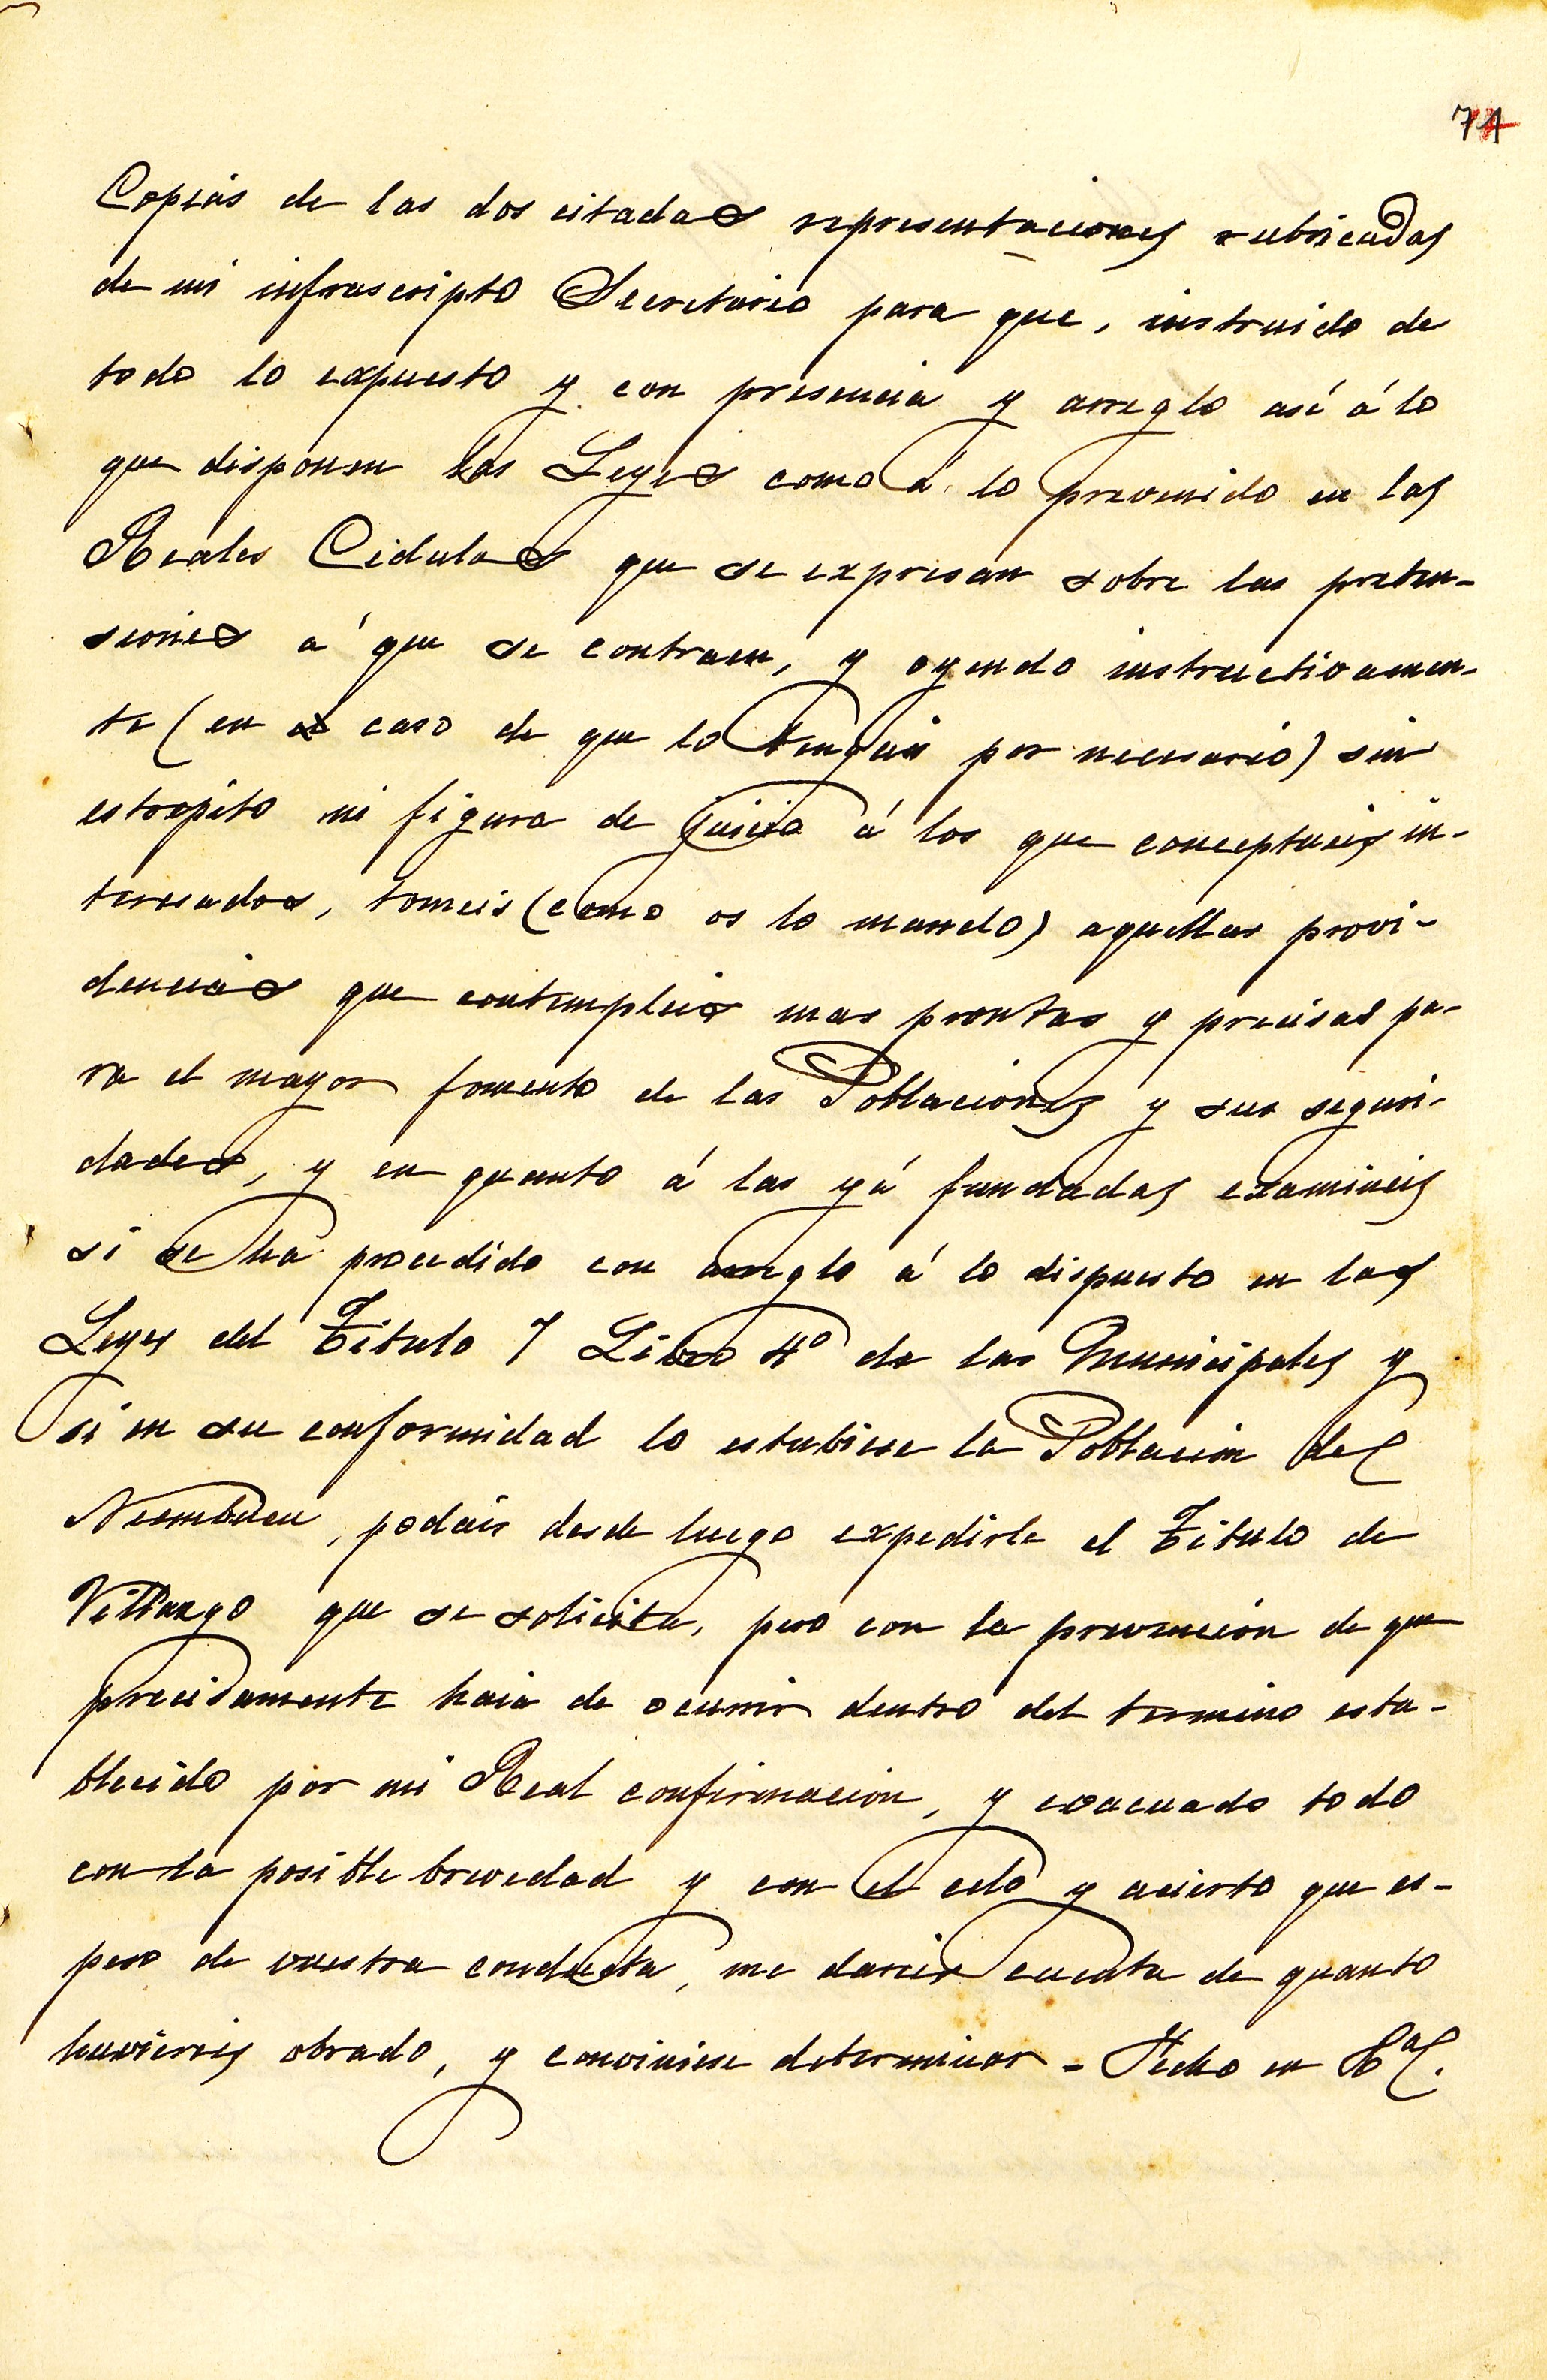 74
Copias de las dos citadas representaciones rubricadas
de mi infrascripto Secretario para que, instruido de
todo lo expuesto y con presencia y arreglo asi á lo
que disponen las Leyes como á lo prevenido en las
Reales Cedulas que se expresan sobre las preten-
siones a que se contraen, y oyendo instructivamen-
te (en caso de que lo tengais por necesario) sin
estrepito ni figura de juicio á los que conceptueis in-
teresados, tomeis (como os lo mando) aquellas provi-
dencias que contempleis mas prontas y precisas pa-
ra el mayor fomento de las Poblaciones y sus seguri-
dades, y en quanto á las yá fundadas examineis
si se ha procedido con arreglo á lo dispuesto en las
Leyes del Titulo 7 Libro 4º de las Municipales y
si en su conformidad lo estubiese la Poblacion del
Neembucu, podais desde luego expedirle el Titulo de
Villazgo que se solicita, pero con la prevencion de que
precisamente haia de ocurrir dentro del termino esta-
blecido por mi Real confirmacion, y evacuado todo
con la posible brevedad y con el celo y acierto que es-
pero de vuestra conducta, me dareis cuenta de quanto
huviereis obrado, y conviniese determinar - Fecho en